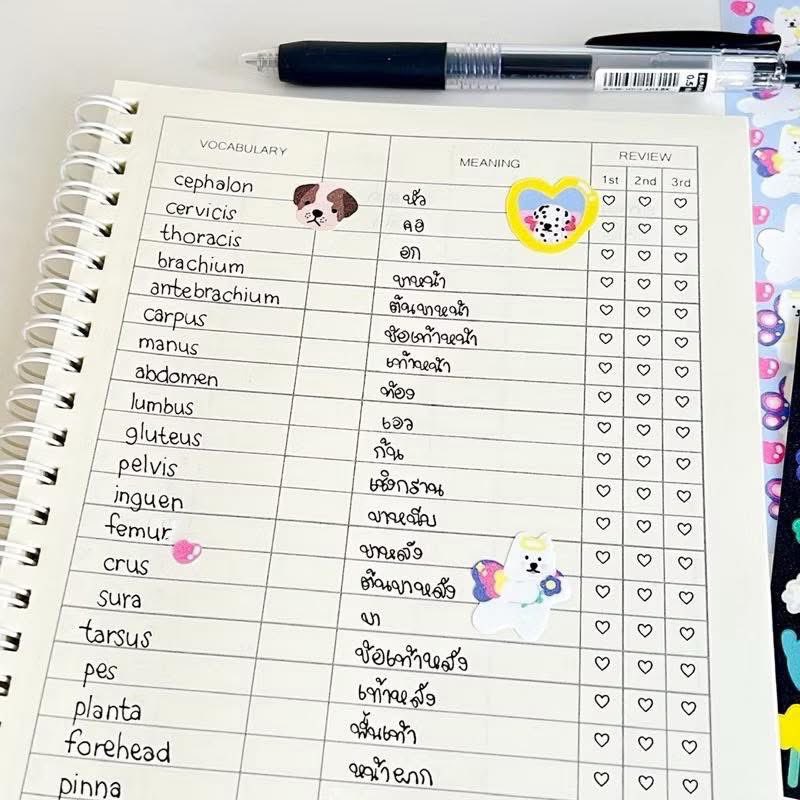 VOCABULARY MEANING REVIEW
1st 2nd 3rd
cephalon หัว
cervicis คอ
thoracis อก
brachium ขาหน้า
antebrachium ต้นขาหน้า
carpus ข้อเท้าหน้า
manus เท้าหน้า
abdomen ท้อง
lumbus เอว
gluteus ก้น
pelvis เชิงกราน
inguen ขาหนีบ
femur ขาหลัง
crus ต้นขาหลัง
sura ขา
tarsus ข้อเท้าหลัง
pes เท้าหลัง
planta พื้นเท้า
forehead หน้าผาก
pinna
0.5